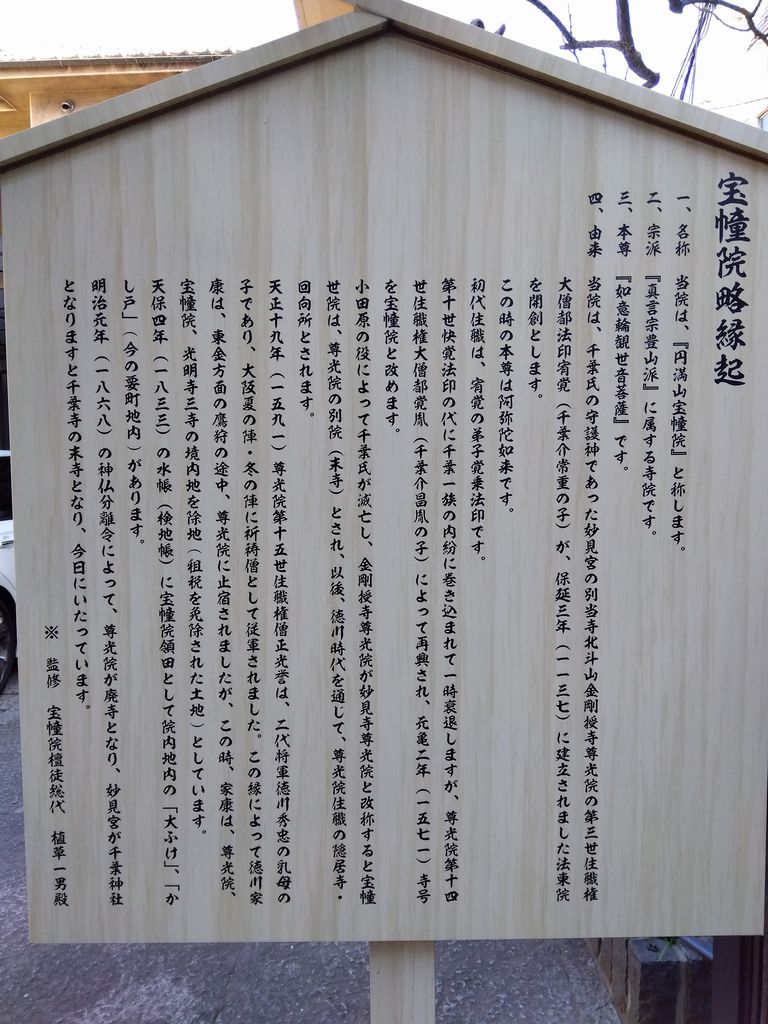 宝幢院略縁起
一、名称　当院は、『円満山宝幢院』と称します。
二、宗派　『真言宗豊山派』に属する寺院です。
三、本尊　『如意輪観世音菩薩』です。
四、由来　当院は、千葉氏の守護神であった妙見宮の別当寺北斗山金剛授寺尊光院の第三世住職権
大僧都法印宥覚（千葉介常重の子）が、保延三年（一一三七）に建立されました法東院
を開創とします。
この時の本尊は阿弥陀如来です。
初代住職は、宥覚の弟子覚乗法印です。
第十世快覚法印の代に千葉一族の内紛に巻き込まれて一時衰退しますが、尊光院第十四
世住職権大僧都覚胤（千葉介昌胤の子）によって再興され、元亀二年（一五七一）寺号
を宝幢院と改めます。
小田原の役によって千葉氏が滅亡し、金剛授寺尊光院が妙見寺尊光院と改称すると宝幢
世院は、尊光院の別院（末寺）とされ、以後、徳川時代を通じて、尊光院住職の隠居寺・
回向所とされます。
天正十九年（一五九一）尊光院第十五世住職権僧正光誉は、二代将軍徳川秀忠の乳母の
子であり、大阪夏の陣・冬の陣に祈祷僧として従軍されました。この縁によって徳川家
康は、東金方面の鷹狩の途中、尊光院に止宿されましたが、この時、家康は、尊光院、
宝幢院、光明寺三寺の境内地を除地（租税を免除された土地）としています。
天保四年（一八三三）の水帳（検地帳）に宝幢院領田として院内地内の「大ふけ」、「か
し戸」（今の要町地内）があります。
明治元年（一八六八）の神仏分離令によって、尊光院が廃寺となり、妙見宮が千葉神社
となりますと千葉寺の末寺となり、今日にいたっています。
※　監修　宝幢院檀徒総代　植草一男殿